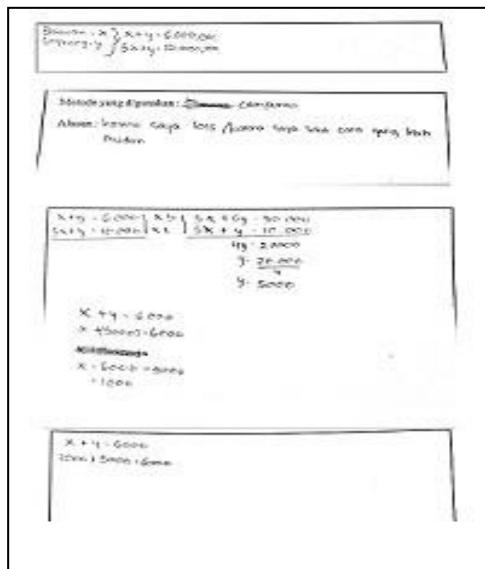 x + y = 6.000,00
5x + y = 10.000,00
Metode yang digunakan: campuran
Alasan: karena saya bisa / karena saya cara yang lebih
mudah
x + y = 6.000 | x 5 | 5x + 5y = 30.000
5x + y = 10.000 | x 1 | 5x + y = 10.000
4y = 20000
y = 20.000
4
y = 5000
x + y = 6000
x + 5000 = 6000
x = 6000 - 5000
= 1000
x + y = 6000
1000 + 5000 = 6000